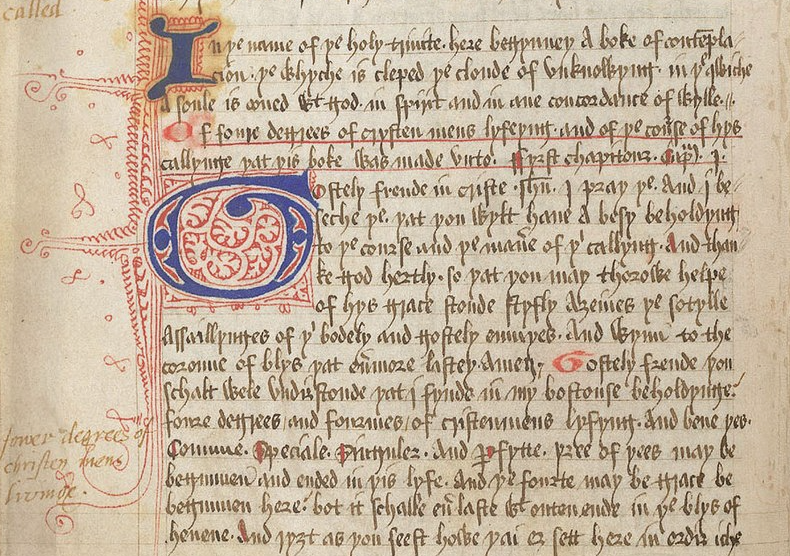 called
In ye name of ye holy trinite. here begynney A boke of contēpla-
cion. ye whyche is cleped ye cloude of vnknowyng. in ye qwiche
A soule is oned wt god. in spirit and in ane concordance of wylle.
Of foure degrees of crysten mens lyfeyng. and of ye course of hys
callynge yat yis boke was made vnto. ffyrst chapitour. Ca. j.
Gostely frende in criste. Ihu. I pray ye. And I be-
seche ye. yat you wylt haue A besy beholdyng
to ye course and ye maner of yi callyng. And than-
ke god hertly. so yat you may thorowe helpe
of hys grace stonde styfly Azeines ye sotylle
Assaillynges of yi bodely and gostely enmyes. And wynn to the
coroune of blys yat euermore lastey. Amen. Gostely frende you
schalt wele vndirstonde yat I fynde in my bostouse beholdynge.
foure degrees and fourmes of cristenmens lyfyng. And bene yes.
Comune. Speciale. Singuler. And Perfytte. yree of yees may be
begunnen and ended in yis lyfe. And ye fourte may be grace be
begunnen here. bot it schalle eu laste wt outen ende in ye blys of
heuene. And ryzt as you seest howe yai er sett here in ordir iche
fower degrees of
christen mens
livinge.